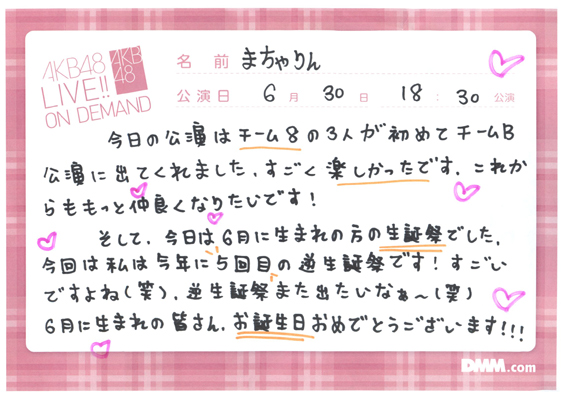 AKB48
LIVE!!
ON DEMAND
AKB
48
名前 まちゃりん
公演日 6月30日 18:30公演
今日の公演はチーム8の3人が初めてチームB
公演に出てくれました、すごく楽しかったです、これか
らももっと仲良くなりたいです!
そして、今日は6月に生まれの方の生誕祭でした、
今回は私は今年に5回目の逆生誕祭です!すごい
ですよね(笑)、逆生誕祭また出たいなぁ～(笑)
6月に生まれの皆さん、お誕生日おめでとうございます!!!
DMM.com